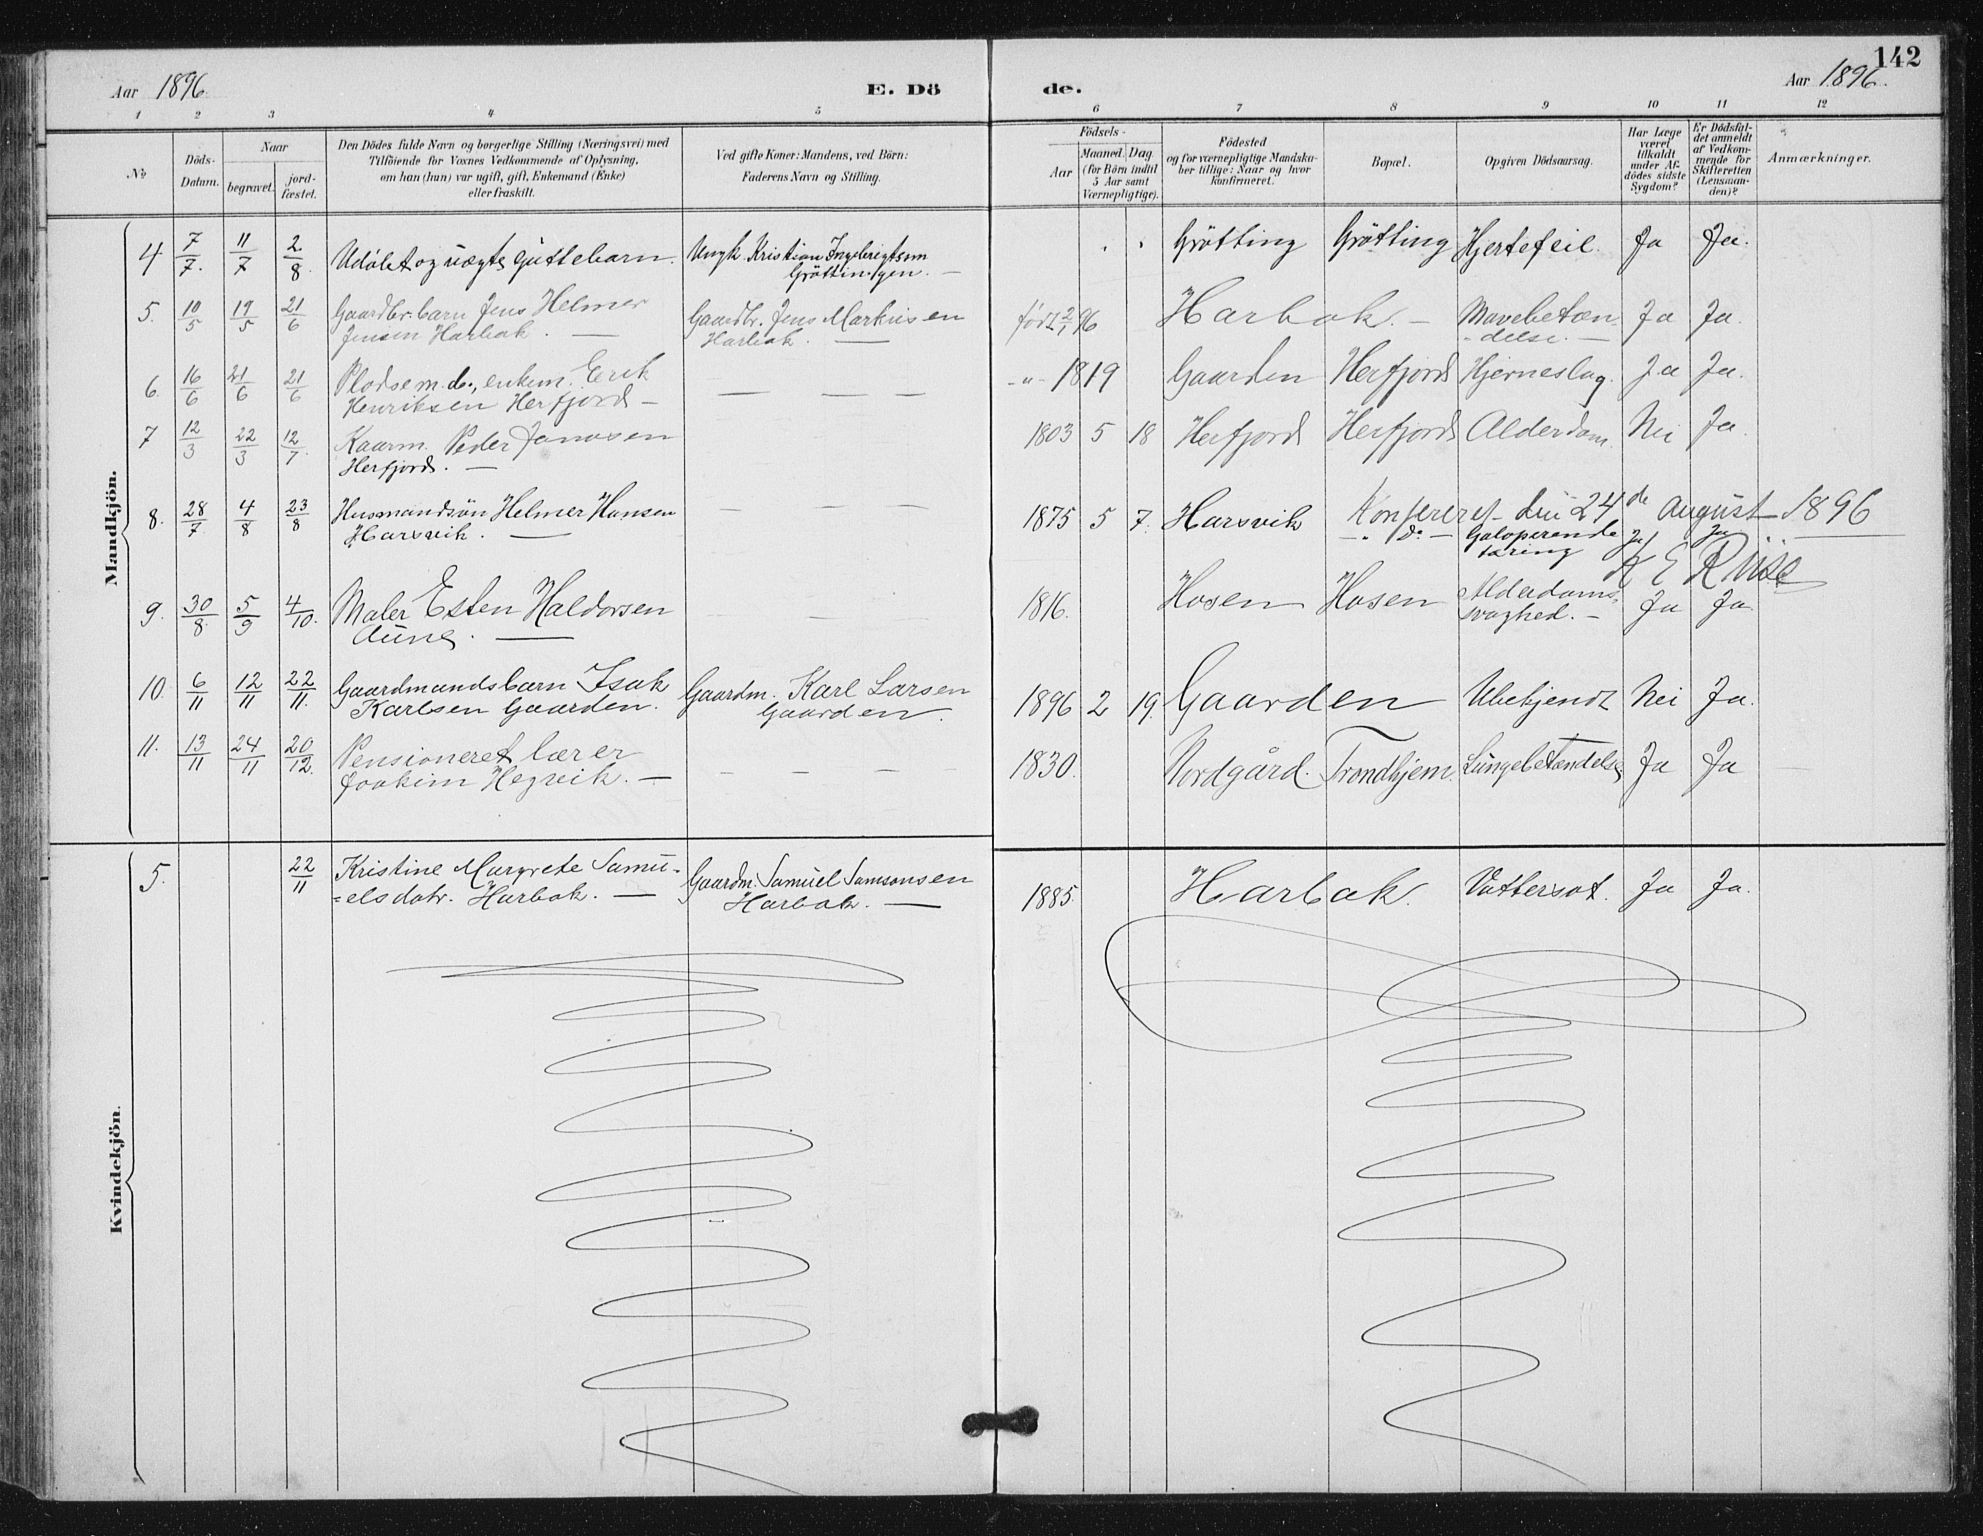 142
Aar 1896 E. Dö de. Aar 1896.
1 2 3 4 5 6 7 8 9 10 11 12
No
Döds-
Datum.
Naar
begravet.
jord-
fæstet.
Den Dödes fulde Navn og borgerlige Stilling (Næringsvei) med
Tilföiende for Voxnes Vedkommende af Oplysning,
om han (hun) var ugift, gift, Enkemand (Enke)
eller fraskilt.
Ved gifte Koner: Mandens, ved Börn:
Faderens Navn og Stilling.
Födsels-
Aar
Maaned. Dag.
(for Börn indtil
5 Aar samt
Værnepligtige).
Födested
og for værnepligtige Mandska-
ber tillige: Naar og hvor
konfirmeret.
Bopæl.
Opgiven Dödsaarsag.
Har Læge
været
tilkaldt
under Af-
dödes sidste
Sygdom?
Er Dödsfal-
det anmeldt
af Vedkom-
mende for
Skifteretten
(Lensman-
den)?
Anmærkninger.
Mandkjön.
4 7/7. 11/7 2/8. Udøbt og uægte guttebarn. Ungk. Kristian Ingebrigtsen . . Grøtting Grøtting Hjertefeil. Ja Ja.
Grøttingen. —
5. 10/5 19/5 21/6 Gaardbr. barn Jens Helmer Gaardbr. Jens Markusen født 2/1 96 Harbak. — Mavebetæn- Ja Ja.
Jensen Harbak. — Harbak. — -delse. —
6. 16/6 21/6 21/6 enkem. Erik — — — — -"- 1819 Gaarden Herfjord Hjerneslag. Ja Ja.
Henriksen Herfjord —
7 12/3 22/3 12/7. Kaarm. Peder Janosen 1803 5 18 Herfjord Herfjord Alderdom. Nei Ja.
Herfjord. —
8. 28/7 4/8 23/8 Husmandsøn Helmer Hansen — — — 1875 5 7. Harsvik Konfereret den 24de August 1896
Harsvik. — -"- do — Galoperende Ja Ja
tæring
K E Riise
9. 30/8 5/9 4/10. Maler Esten Haldorsen — — — 1816. Hosen Hosen Alderdoms- Ja Ja
Aune. — svaghed. —
10. 6/11 12/11 22/11. Gaardmandsbarn Isak Gaardm. Karl Larsen 1896 2 19. Gaarden Ubekjendt Nei Ja.
Karlsen Gaarden. Gaarden.
11. 13/11 24/11 20/12. Pensioneret lærer — — — — 1830. Nordgård. Trondhjem. Lungebetændelse Ja Ja —
Joakim Hegvik. —
Kvindekjön.
5. 22/11 Kristine Margrete Samu- Gaardm. Samuel Samsonsen 1885. Harbak. Vattersot. Ja Ja.
=elsdatr. Harbak. — Harbak. —